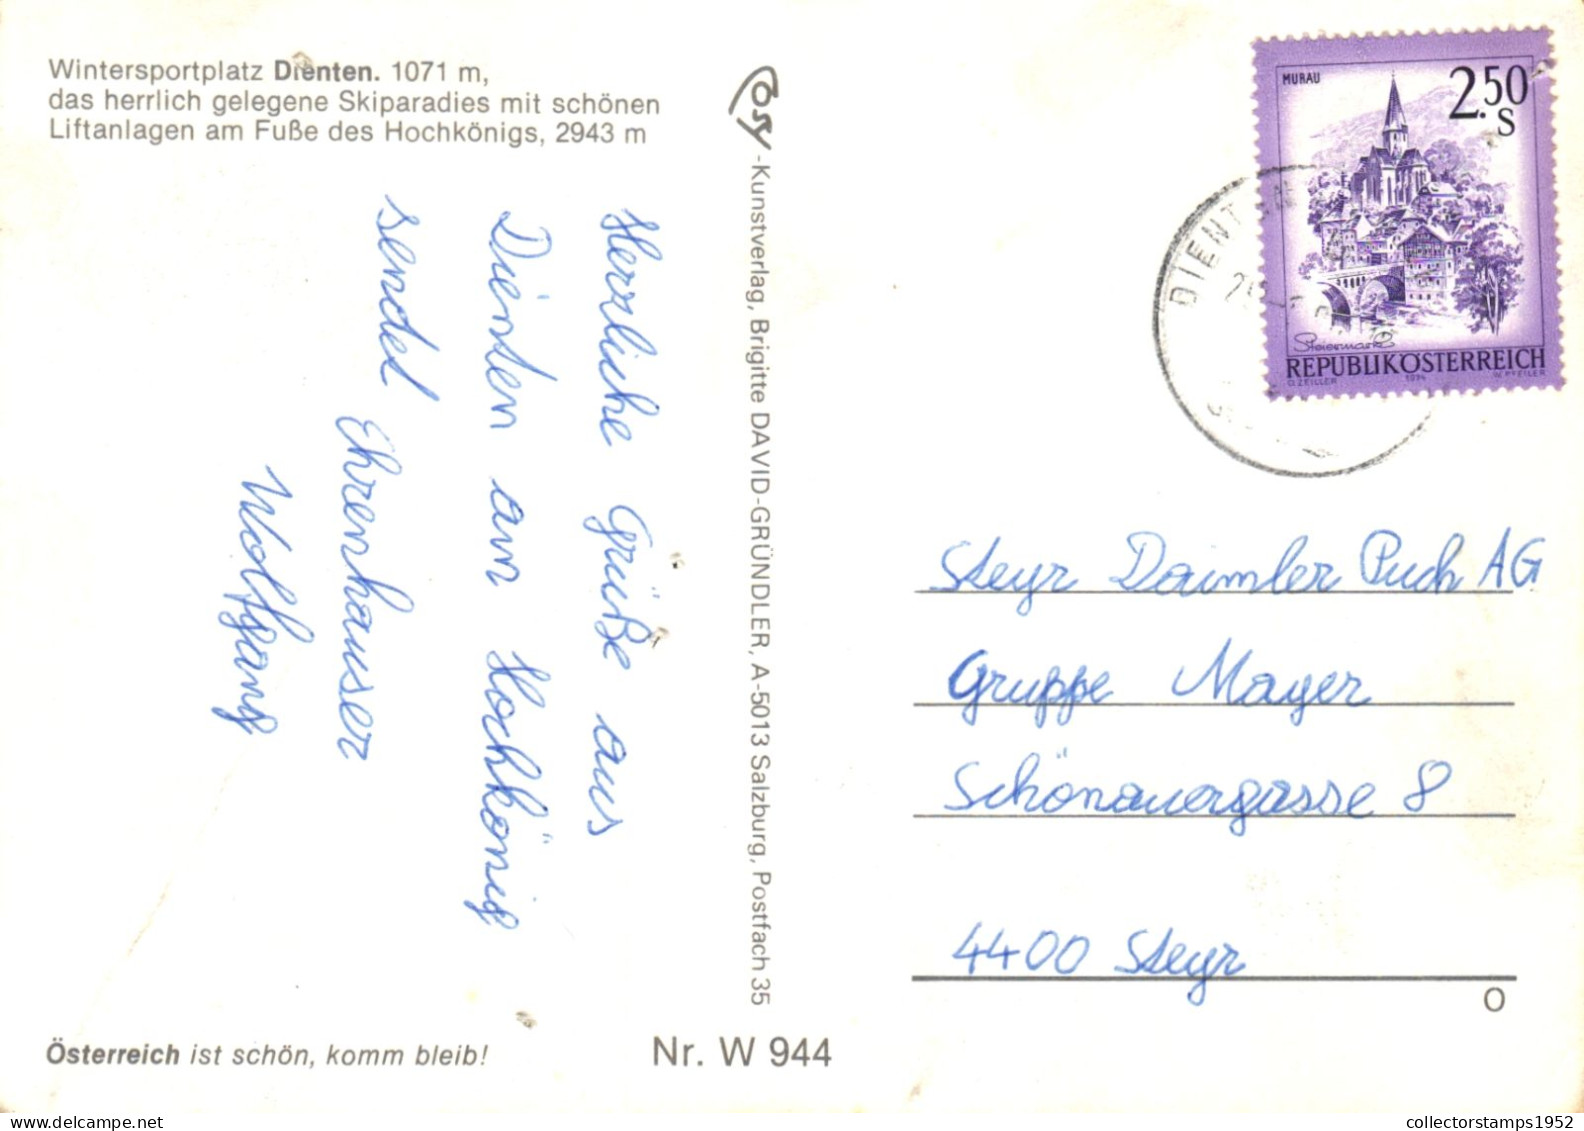 Wintersportplatz Dienten. 1071 m,
das herrlich gelegene Skiparadies mit schönen
Liftanlagen am Fuße des Hochkönigs, 2943 m
Herrliche Grüße aus
Dienten am Hochkönig
sendet Ehrenhauser
Wolfgang
Cosy-Kunstverlag, Brigitte DAVID-GRÜNDLER, A-5013 Salzburg, Postfach 35
MURAU
2.50
S
Steiermark
REPUBLIK ÖSTERREICH
O. ZEILLER 1974 W. PFEILER
DIENTEN
Steyr Daimler Puch AG
Gruppe Mayer
Schönauergasse 8
4400 Steyr
O
Österreich ist schön, komm bleib!
Nr. W 944
collectorstamps1952